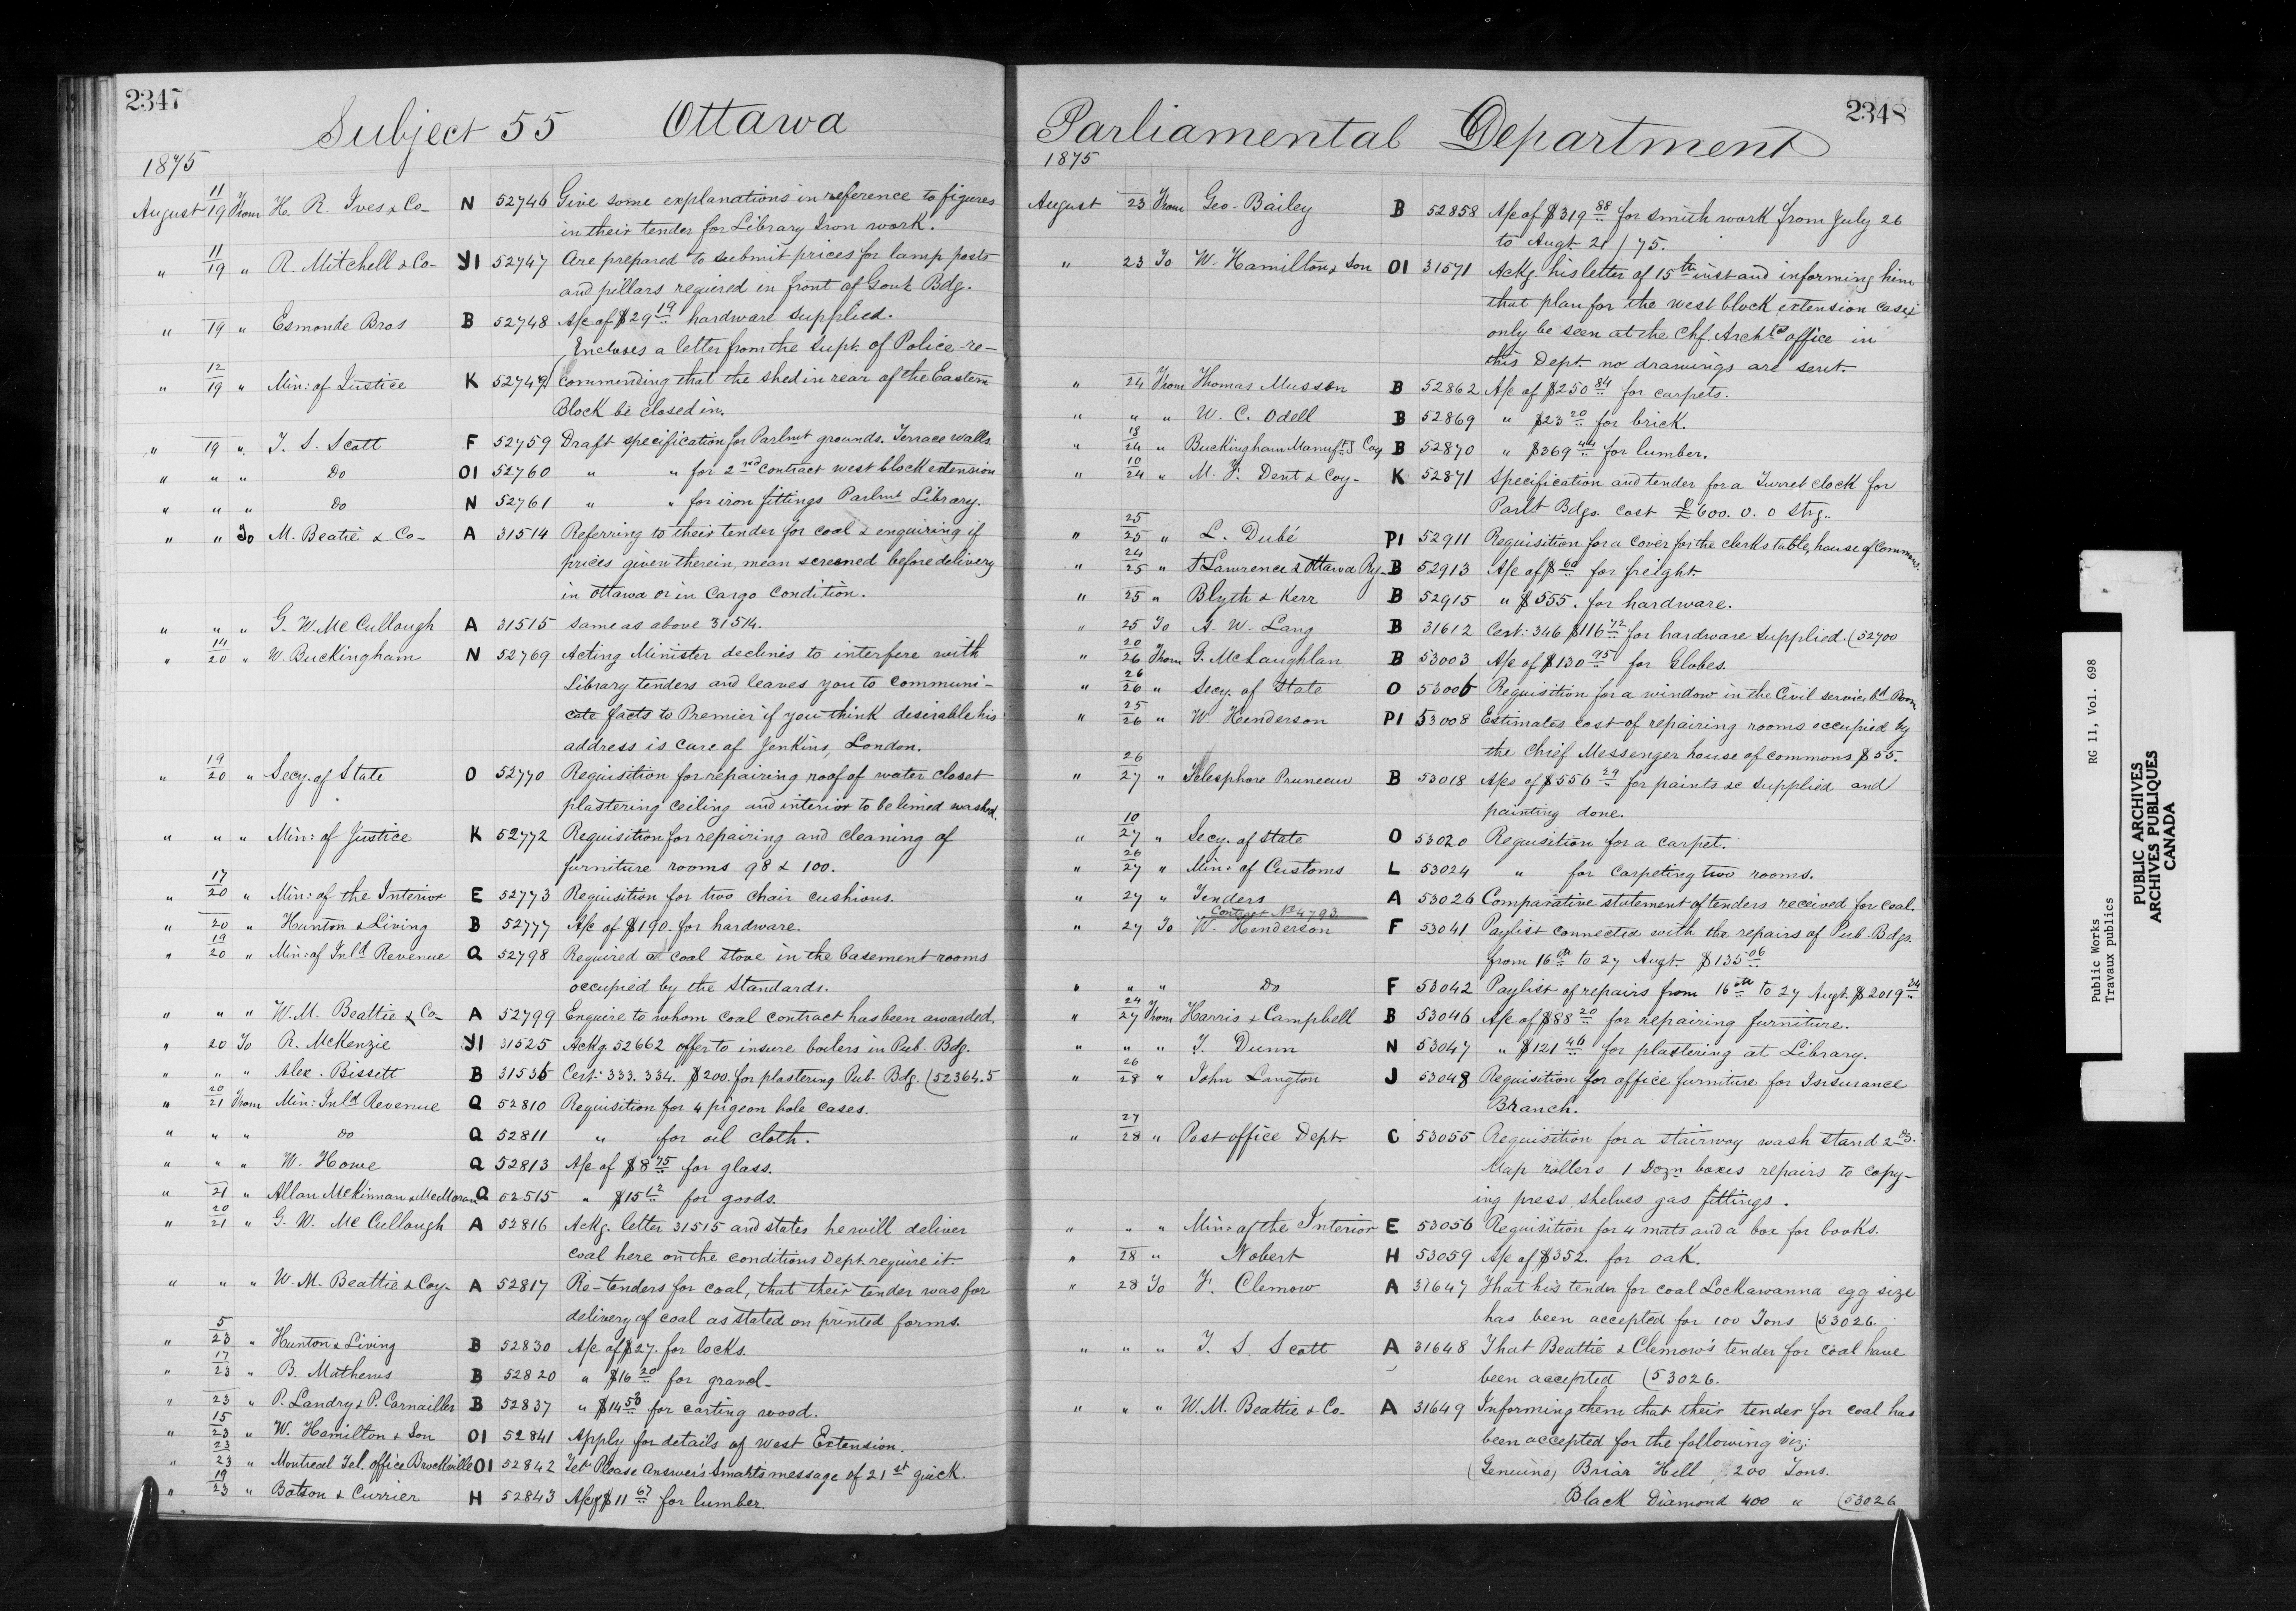 2347
Subject 55 Ottawa
1875
August 11/19 From H. R. Ives & Co- N 52746 Give some explanations in reference to figures
in their tender for Library Iron work.
" 11/19 " R. Mitchell & Co- Y1 52747 Are prepared to submit prices for lamp posts
and pillars required in front of Govt. Bdg.
" 19 " Esmonde Bros B 52748 A/c of $29 19 hardware supplied.
Encloses a letter from the Supt. of Police re-
" 12/19 " Min: of Justice K 52749 commending that the shed in rear of the Eastern
Block be closed in.
" 19 " T. S. Scott F 52759 Draft specification for Parlmt grounds. Terrace walls
" " " Do O1 52760 " " for 2nd contract west block extension
" " " Do N 52761 " " for iron fittings Parlmt Library.
" " To M. Beatie & Co- A 31514 Referring to their tender for coal & enquiring if
prices given therein, mean screened before delivery
in Ottawa or in Cargo Condition.
" " " G. W. McCullough A 31515 same as above 31514.
" 14/20 " W. Buckingham N 52769 Acting Minister declines to interfere with
Library tenders and leaves you to communi-
cate facts to Premier if you think desirable his
address is Care of Jenkins, London.
" 19/20 " Secy. of State O 52770 Requisition for repairing roof of water closet
plastering ceiling and interior to be limed washed.
" " " Min: of Justice K 52772 Requisition for repairing and cleaning of
furniture rooms 98 & 100.
" 17/20 " Min: of the Interior E 52773 Requisition for two chair cushions.
" 20 " Hunton & Living B 52777 A/c of $190. for hardware.
" 19/20 " Min: of Inld Revenue Q 52798 Required a coal stove in the basement rooms
occupied by the Standards.
" " " W. M. Beattie & Co- A 52799 Enquire to whom coal contract has been awarded.
" 20 To R. McKenzie Y1 31525 Ackg. 52662 offer to insure boilers in Pub. Bdg.
" " " Alex. Bissett B 31536 Cert: 333. 334. $200. for plastering Pub. Bdg. (52364.5
" 20/21 From Min: Inld Revenue Q 52810 Requisition for 4 pigeon hole cases.
" " " do Q 52811 " for oil cloth.
" " " W. Howe Q 52813 A/c of $8 75 for glass.
" 21 " Allan McKinnan & McMoran Q 52515 " $15 12 for goods.
" 20/21 " G. W. McCullough A 52816 Ackg. letter 31515 and states he will deliver
coal here on the conditions Dept. require it.
" " " W. M. Beattie & Coy- A 52817 Re-tenders for coal, that their tender was for
delivery of coal as stated on printed forms.
" 5/23 " Hunton & Living B 52830 A/c of $27. for locks.
" 17/23 " B. Mathews B 52820 " $16 20 for gravel-
" 23 " P. Landry & P. Carnailler B 52837 " $14 50 for carting wood.
" 15/23 " W. Hamilton & Son O1 52841 Apply for details of West Extension.
" 23/23 " Montreal Tel. office Brockville O1 52842 Tel: Please Answer's Smarts message of 21st quick.
" 19/23 " Batson & Currier H 52843 A/c of $11 67 for lumber.
2348
Parliamental Department
1875
August 23 From Geo. Bailey B 52858 A/c of $319 88 for smith work from July 26
to Augt. 21/75.
" 23 To W. Hamilton & Son O1 31571 Ackg. his letter of 15th inst and informing him
that plan for the west block extension case
only be seen at the Chf. Archts office in
this Dept. no drawings are sent.
" 24 From Thomas Musson B 52862 A/c of $250 84 for carpets.
" " " W. C. Odell B 52869 " $23 20 for brick.
" 18/24 " Buckingham Manuftg Coy B 52870 " $369 44 for lumber.
" 10/24 " M. F. Dent & Coy- K 52871 Specification and tender for a Turret clock for
Parlt Bdgs. Cost £600. 0. 0 Stg..
" 25/25 " L. Dubé P1 52911 Requisition for a Cover for the clerks table, house of Commons.
" 24/25 " St Lawrence & Ottawa Ry- B 52913 A/c of $ 60 for freight.
" 25 " Blyth & Kerr B 52915 " $555. for hardware.
" 25 To A. W. Lang B 31612 Cert: 346 $116 12 for hardware supplied. (52700
" 20/26 From G. McLaughlan B 53003 A/c of $130 95 for Globes.
" 26/26 " Secy. of State O 53006 Requisition for a window in the Civil service Bd Room
" 25/26 " W. Henderson P1 53008 Estimates cost of repairing rooms occupied by
the Chief Messenger house of commons $55.
" 26/27 " Telesphore Pruneau B 53018 A/cs of $556 29 for paints &c supplied and
painting done.
" 10/27 " Secy. of State O 53020 Requisition for a carpet.
" 26/27 " Min: of Customs L 53024 " for carpeting two rooms.
" 27 " Tenders A 53026 Comparative statement of tenders received for coal.
Contract No 4793
" 27 To W. Henderson F 53041 Paylist connected with the repairs of Pub. Bdgs.
from 16th to 27 Augt. $135 06
" " " Do F 53042 Paylist of repairs from 16th to 27 Augt. $2019 34
" 24/27 From Harris & Campbell B 53046 A/c of $88 20 for repairing furniture.
" " " T. Dunn N 53047 " $121 46 for plastering at Library.
" 26/28 " John Langton J 53048 Requisition for office furniture for Insurance
Branch.
" 27/28 " Post office Dept- C 53055 Requisition for a stairway wash stand 2 Dz.
Map rollers 1 Dozn boxes repairs to copy-
ing press, shelves gas fittings.
" " " Min: of the Interior E 53056 Requisition for 4 mats and a box for books.
" 28 " Nobert H 53059 A/c of $352. for oak.
" 28 To F. Clemow A 31647 That his tender for coal Lockawanna egg size
has been accepted for 100 Tons (53026.
" " " T. S. Scott A 31648 That Beattie & Clemow's tender for coal have
been accepted (53026.
" " " W. M. Beattie & Co- A 31649 Informing them that their tender for coal has
been accepted for the following viz:
(Genuine) Briar Hill 200 Tons.
Black Diamond 400 " (53026
Public Works RG 11, Vol. 698
Travaux publics
PUBLIC ARCHIVES
ARCHIVES PUBLIQUES
CANADA